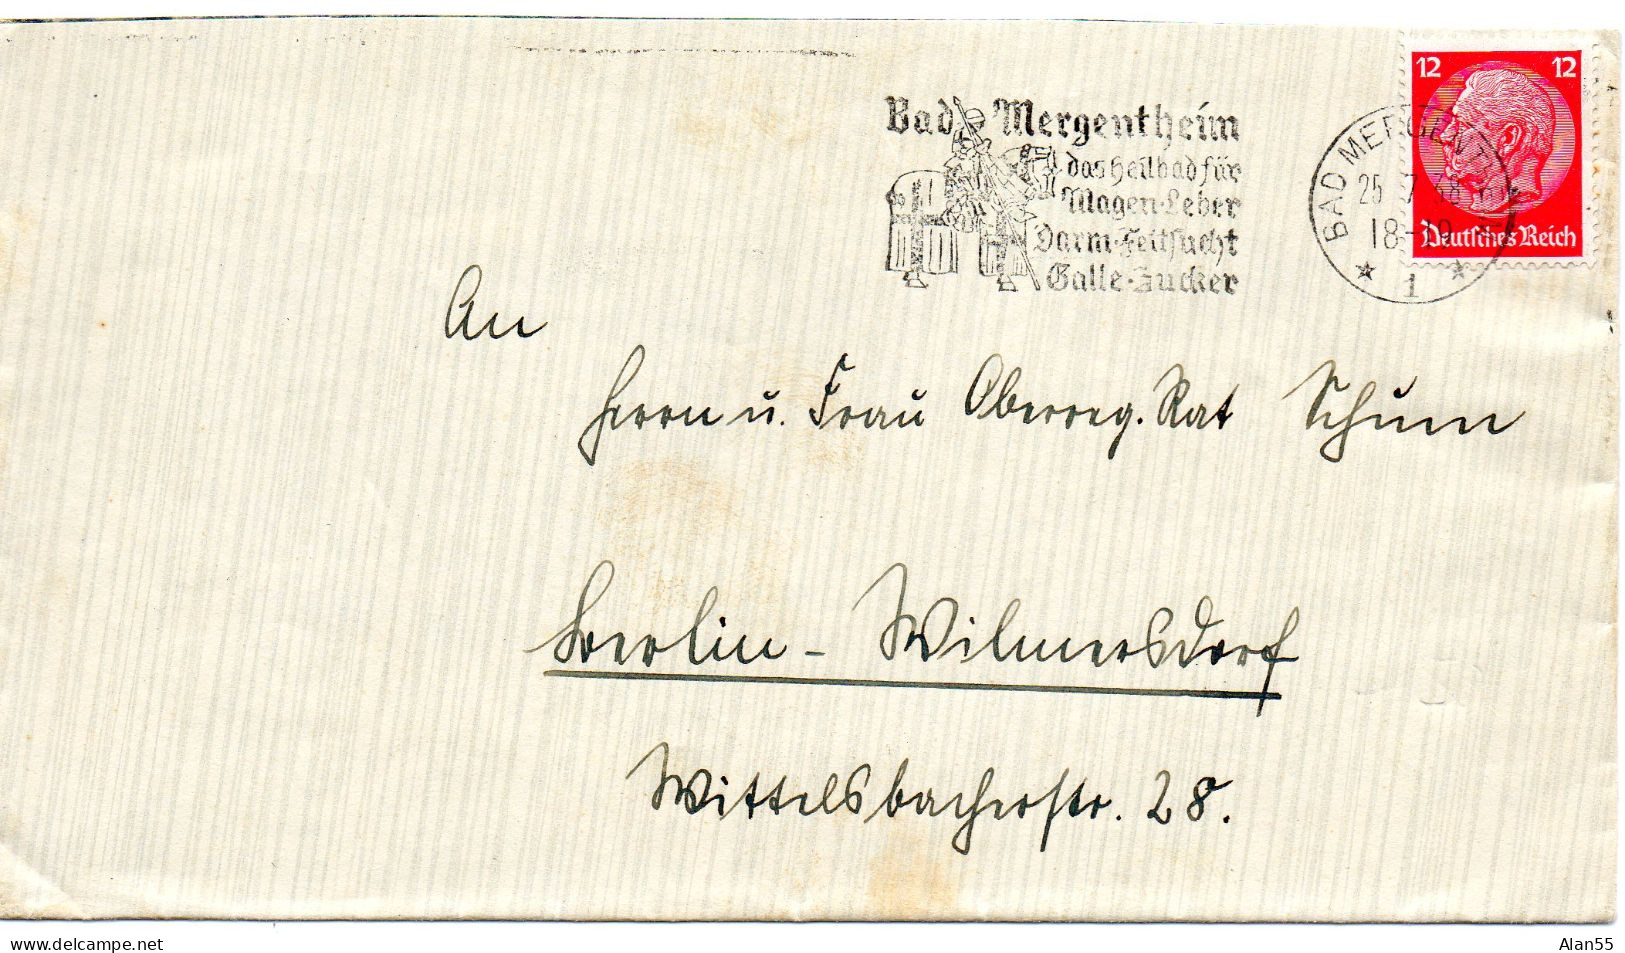 12 12
Deutsches Reich
Bad Mergentheim
das Heilbad für
Magen·Leber
Darm·Fettsucht
Galle·Zucker
BAD MERGENTHEIM
25 7 38
18-19
1
An
Herrn u. Frau Oberreg. Rat Schum
Berlin - Wilmersdorf
Wittelsbacherstr. 28.
delcampe.net
Alan55